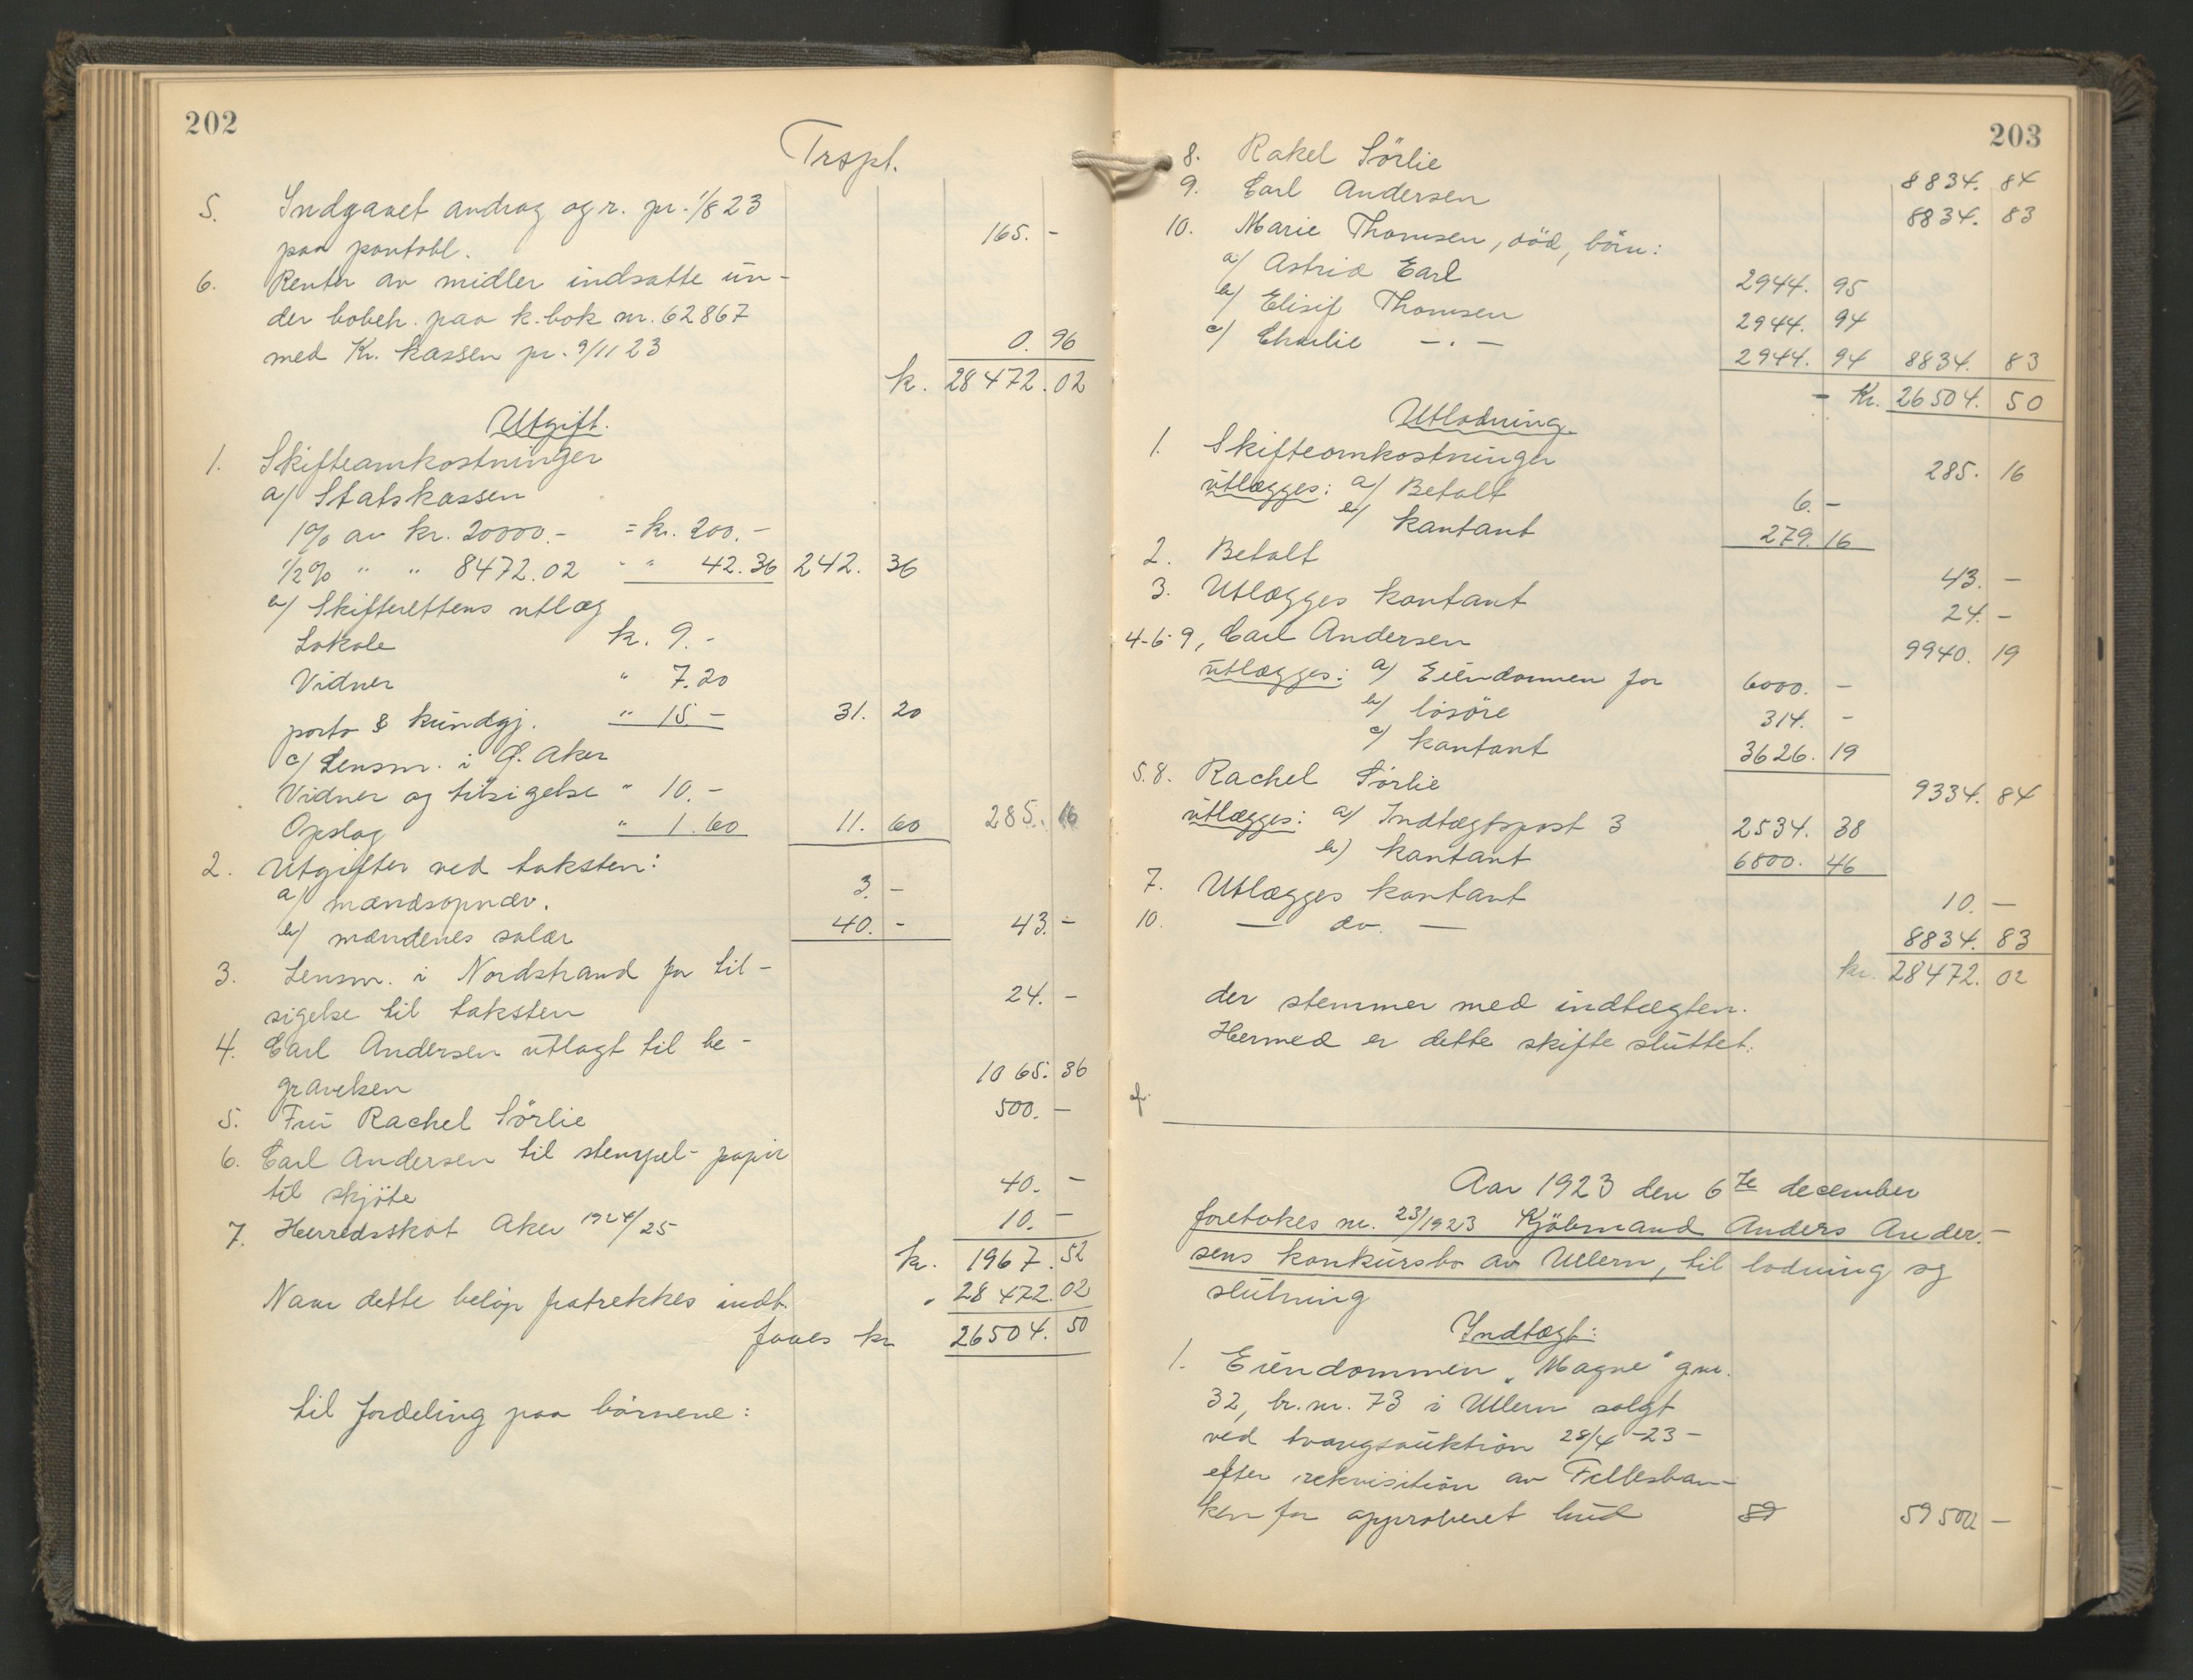 202
Trspt.
5. Indgaaet avdrag og r. pr. 1/8 23
paa pantobl. 165. -
6. Renter av midler indsatte un-
der bobeh. paa k.bok nr. 62867
med Kr. kassen pr. 9/11 23 0. 96
k. 28472. 02
Utgift.
1. Skifteomkostninger
a/ Statskassen
1% av kr. 20000.- = kr. 200.-
1/2% " " 8472.02 " " 42.36 242. 36
b/ Skifterettens utlæg
Lokale k. 9.-
Vidner " 7.20
porto & kundgj. " 15.- 31. 20
c/ Lensm. i Ø. Aker
Vidner og tilsigelse " 10.-
Opslag " 1.60 11. 60 285. 16
2. Utgifter ved taksten:
a/ mændsopnæv. 3. -
b/ mændenes salær 40. - 43. -
3. Lensm. i Nordstrand for til-
sigelse til taksten 24. -
4. Carl Andersen utlagt til be-
gravelsen 1065. 36
5. Fru Rachel Sörlie 500. -
6. Carl Andersen til stempel-papir
til skjöte 40. -
7. Herredsskat Aker 1924/25 10. -
k. 1967. 52
Naar dette belöp fratrekkes indt. " 28472. 02
faaes kr 26504. 50
til fordeling paa börnene:
203
8. Rakel Sörlie 8834. 84
9. Carl Andersen 8834. 83
10. Marie Thomsen, död, börn:
a/ Astrid Earl 2944. 95
b/ Elisif Thomsen 2944. 94
c/ Charlie - " - 2944. 94 8834. 83
- Kr. 26504. 50
Utlodning.
1. Skifteomkostninger 285. 16
utlægges: a/ Betalt 6. -
b/ kontant 279. 16
2. Betalt 43. -
3. Utlægges kontant 24. -
4-6-9, Carl Andersen 9940. 19
utlægges: a/ Eiendommen for 6000. -
b/ lösöre 314. -
c/ kontant 3626. 19
5.8. Rachel Sörlie 9334. 84
utlægges: a/ Indtægtspost 3 2534. 38
b/ kontant 6800. 46
7. Utlægges kontant 10. -
10. - do. - 8834. 83
kr. 28472. 02
der stemmer med indtægten.
Hermed er dette skifte sluttet.
Aar 1923 den 6te december
foretokes nr. 23/1923 Kjöbmand Anders Ander-
sens konkursbo av Ullern, til lodning og
slutning
Indtægt:
1. Eiendommen "Magne" gnr.
32, br.nr. 73 i Ullern solgt
ved tvangsauktion 28/4 -23-
efter rekvisition av Fellesban-
ken for approberet bud 59 59500 -